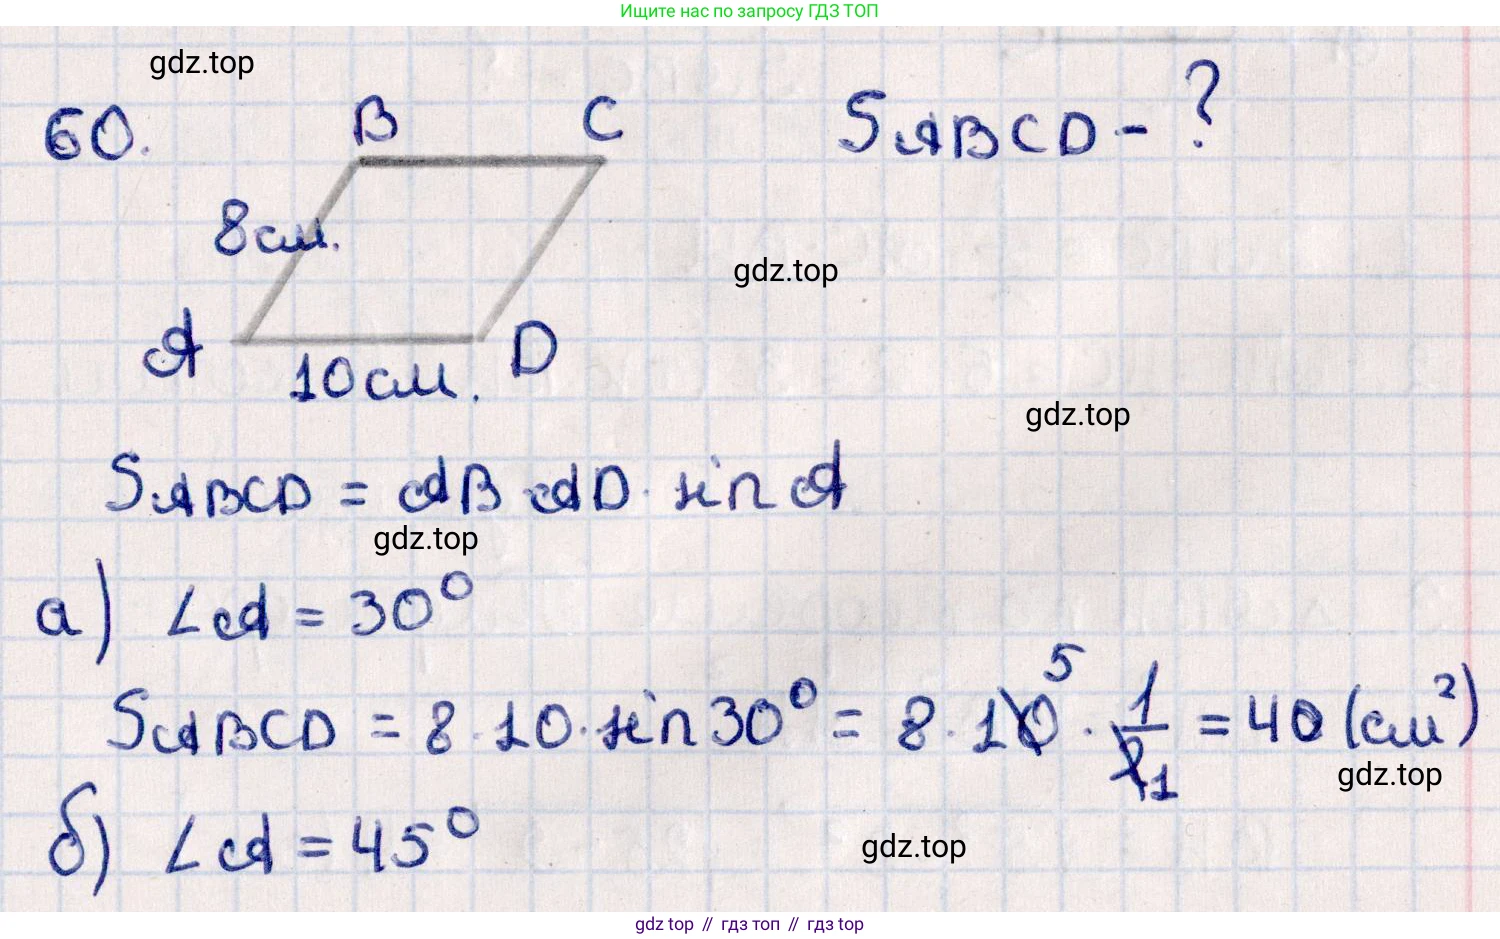 Ищите нас по запросу ГДЗ ТОП
gdz.top
60.
B C
SABCD - ?
8см.
gdz.top
A
D
10см.
gdz.top
SABCD = AB · AD · sin A
gdz.top
а) ∠A = 30°
SABCD = 8 · 10 · sin 30° = 8 · 10 5 · 1/2 1 = 40 (см²)
gdz.top
б) ∠A = 45°
gdz.top
gdz top // гдз топ // гдз top